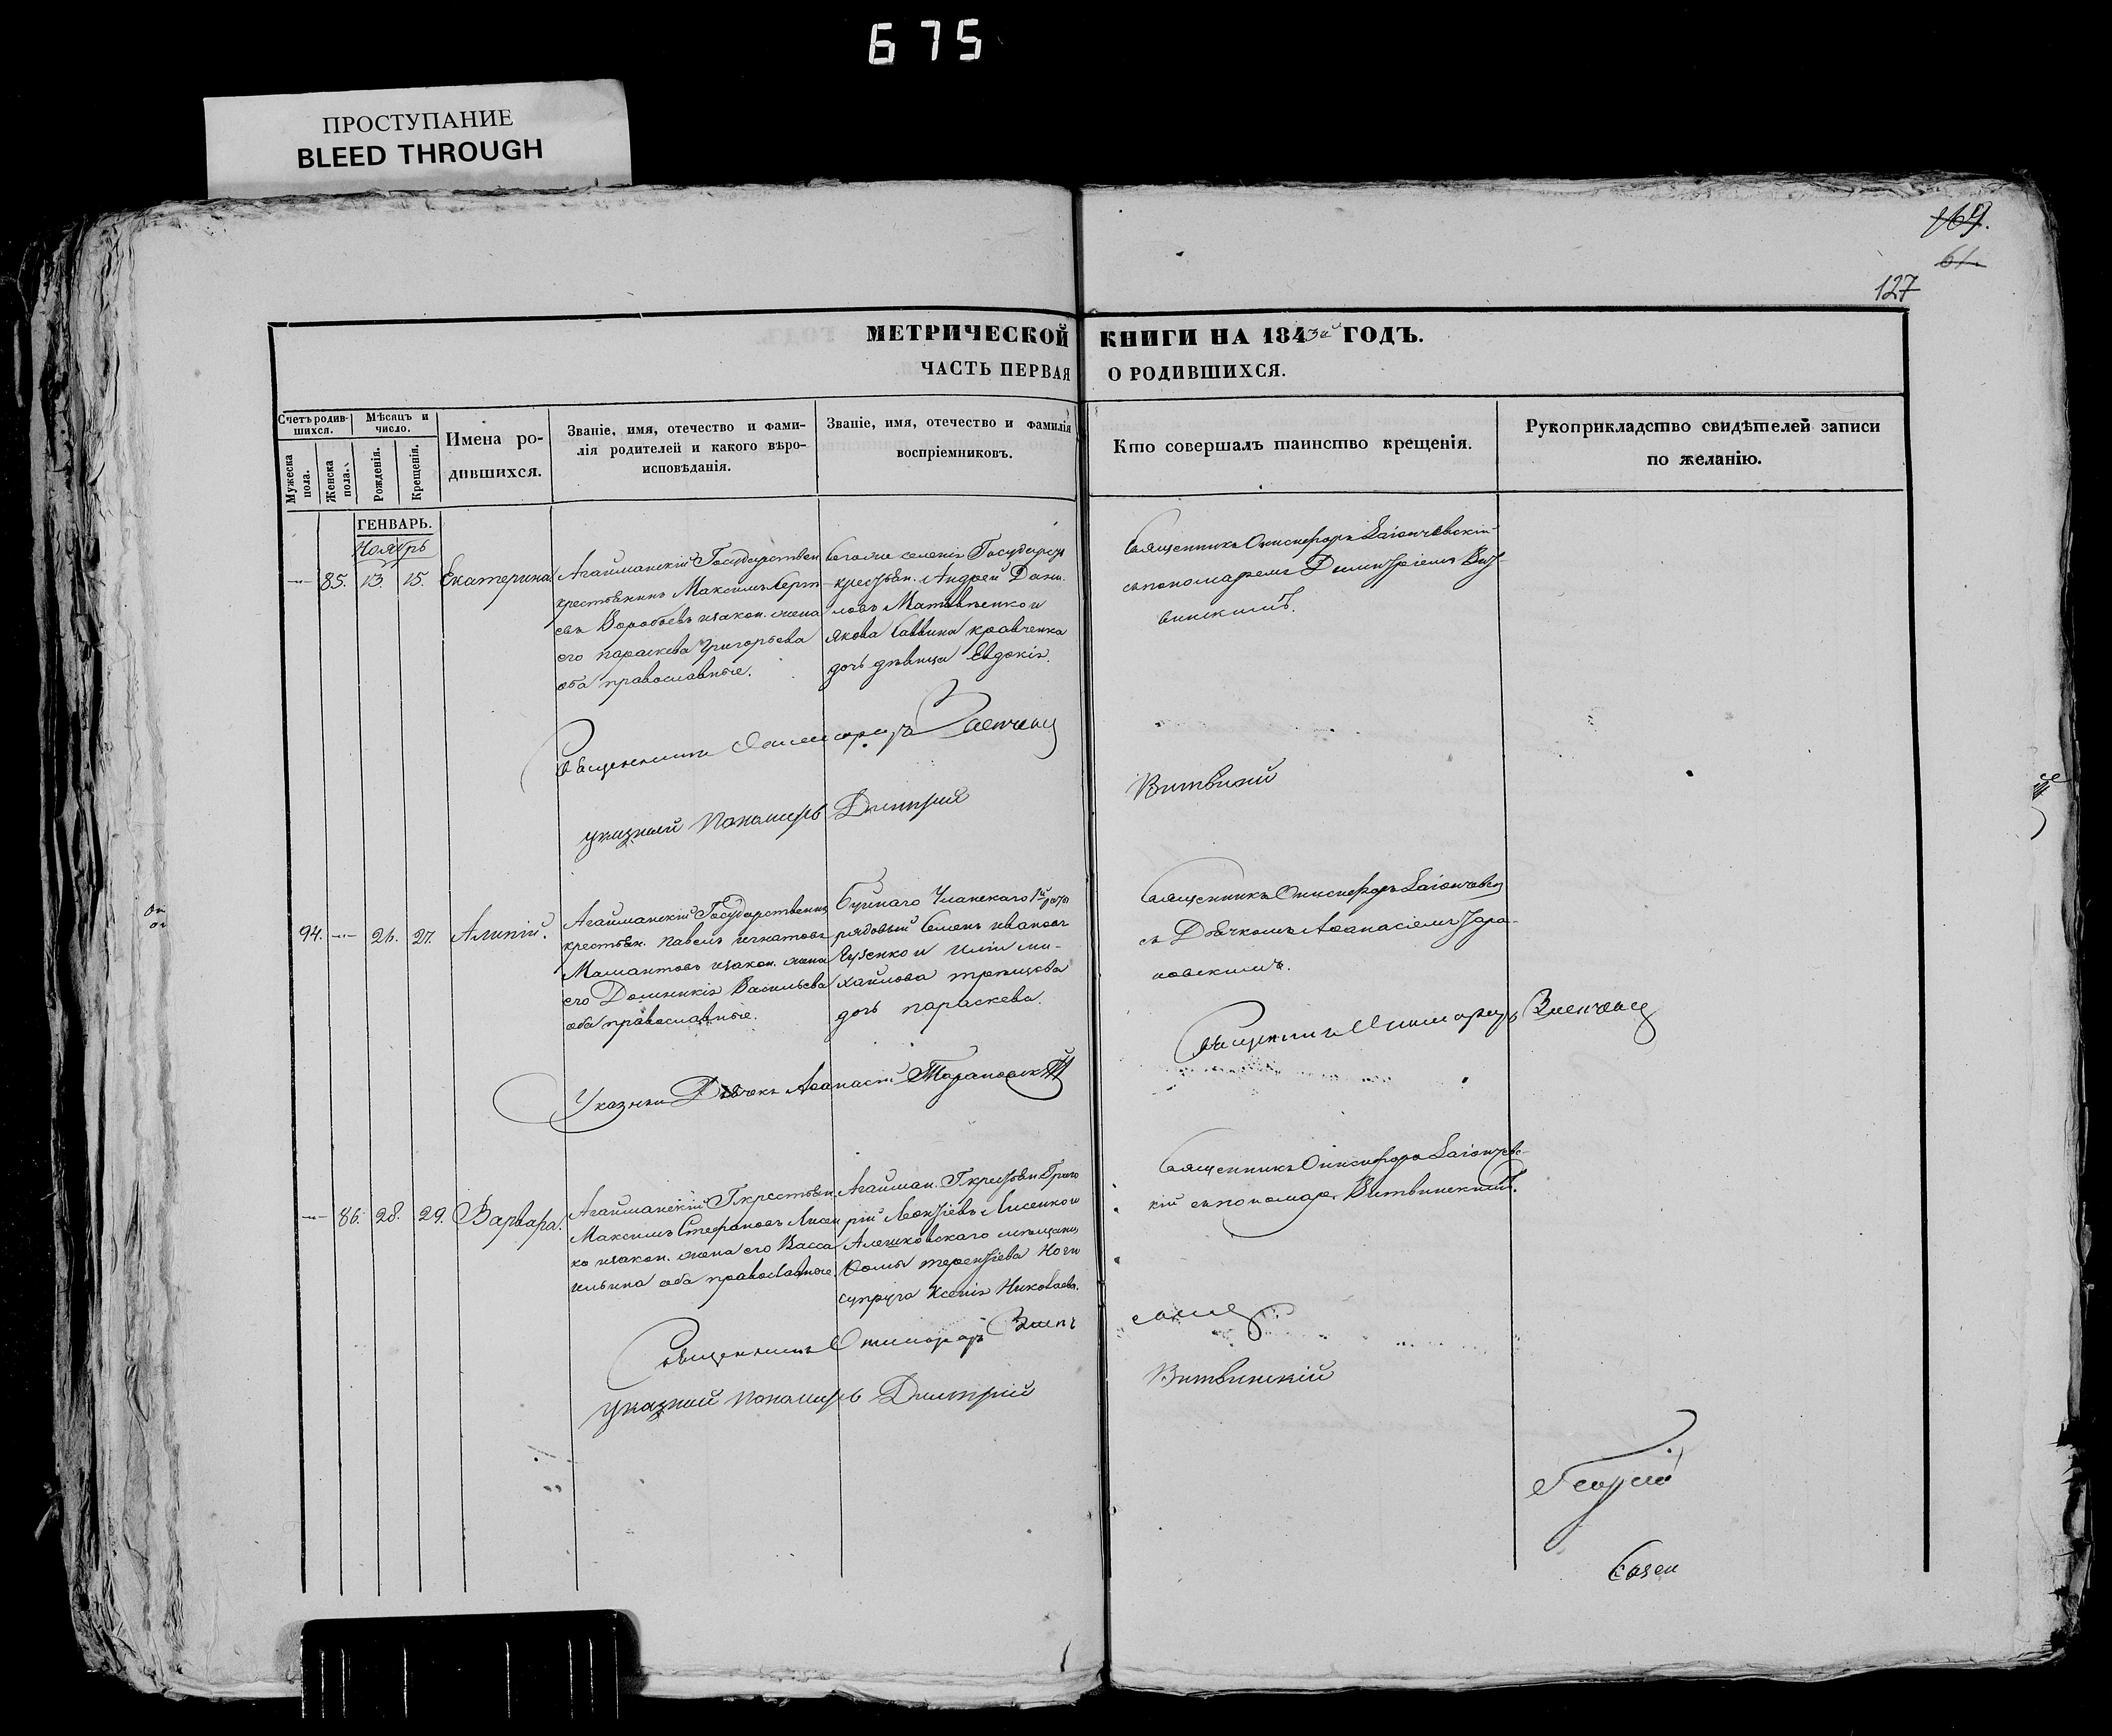 675
ПРОСТУПАНИЕ
BLEED THROUGH
169.
61.
127
МЕТРИЧЕСКОЙ КНИГИ НА 1843й ГОДЪ.
ЧАСТЬ ПЕРВАЯ О РОДИВШИХСЯ.
Счетъ родив-
шихся.
Мужеска
пола.
Женска
пола.
Мѣсяцъ и
число.
Рожденія.
Крещенія.
Имена ро-
дившихся.
Званіе, имя, отечество и фами-
лія родителей и какого вѣро-
исповѣданія.
Званіе, имя, отечество и фамилія
воспріемниковъ.
Кто совершалъ таинство крещенія.
Рукоприкладство свидѣтелей записи
по желанію.
ГЕНВАРЬ.
Ноябрь
85. 13. 15. Екатерина
Агайманскій Государствен
крестьянинъ Максимъ
евъ Воробьевъ изакон. жена
его параскева Григорьева
оба православные.
тогоже селенія Государст
крестьян. Андрей Дани-
ловъ Матвѣенко и
Якова Саввина кравченка
дочь дѣвица Евдокія.
Священникъ Онисифоръ Заіончевскій
съ пономаремъ Димитріемъ Вит-
винскимъ.
Священникъ Онисифоръ
указный Пономарь Дмитрій
Витвинскій
94. 26. 27. Алипій.
Агайманскій Государственн
крестьян. Павелъ Игнатовъ
Мамантовъ изакон. жена
его Домникія Васильева
оба православные.
Бугскаго Уланскаго 1й роты
рядовый Семенъ Ивановъ
и Иліи ми-
хайлова
дочь параскева.
Священникъ Онисифоръ Заіончевск
съ Дьячкомъ Аѳанасіемъ Тара-
новскимъ.
Священникъ Онисифоръ
Указный Дьячекъ Аѳанасій Тарановскій
86. 28. 29. Варвара.
Агайманскій Г крестьян
Максимъ Стефановъ Лисен
ко изакон. жена его Васса
ильина оба православные.
Агайман. Г крестьян Григо
рій Леонтіевъ Лисенко и
Алешковскаго мѣщани
Ѳомы терентіева Ноги
супруга Ксенія Николаева.
Священникъ Онисифоръ Заіончевс-
кій съ пономар. Витвинскимъ.
Священникъ Онисифоръ
указный Пономарь Дмитрій
Витвинскій
Георгій